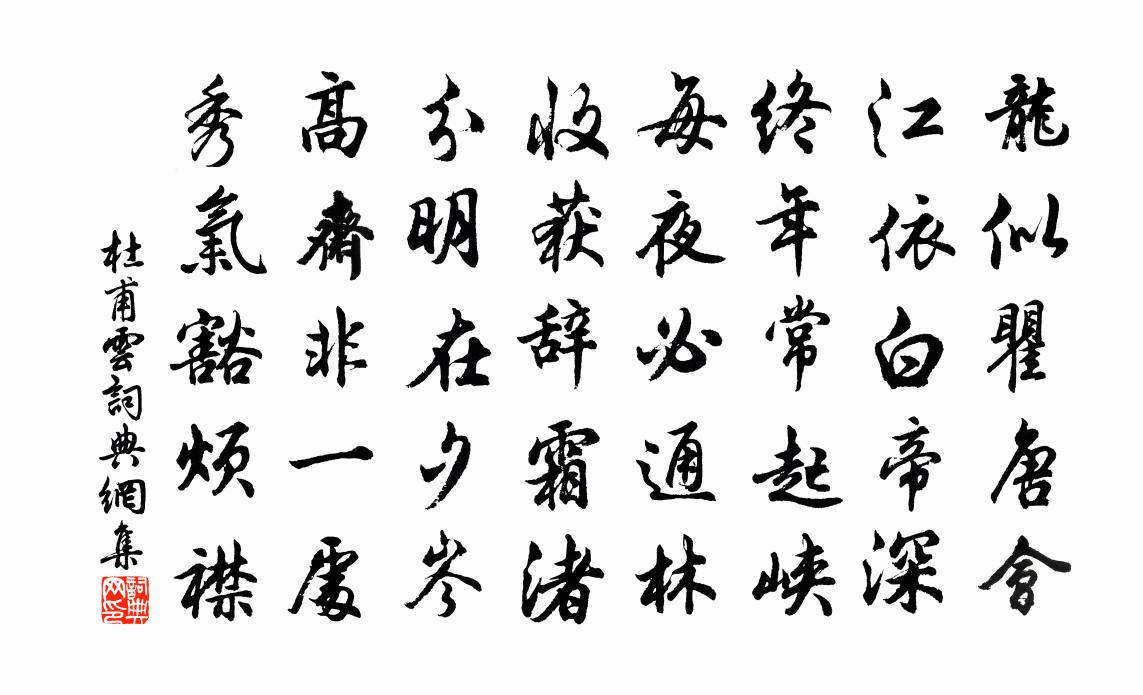 龍似瞿唐會
江依白帝深
终年常起峽
每夜必通林
收获辞霜渚
分明在夕岑
高齋非一處
秀氣豁烦襟
杜甫雲詞典網集
詞典
网印